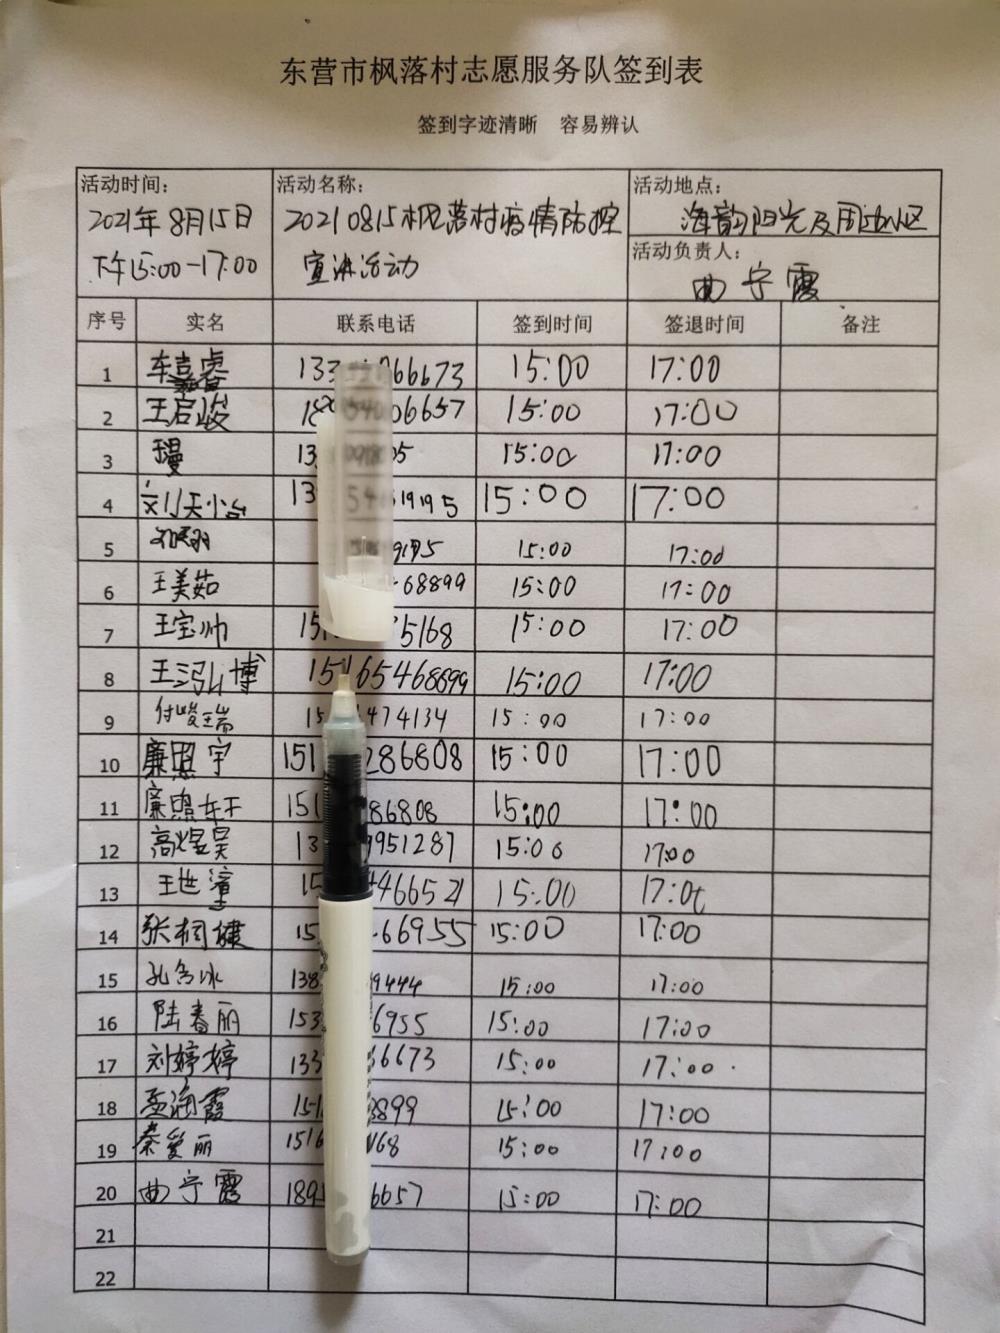 东营市枫落村志愿服务队签到表
签到字迹清晰 容易辨认
活动时间： 活动名称： 活动地点：
2021年8月15日 20210815枫落村疫情防控 海韵阳光及周边小区
下午15:00-17:00 宣讲活动 活动负责人：
曲宁霞
序号 实名 联系电话 签到时间 签退时间 备注
1 车嘉睿 066673 15:00 17:00
2 王启骏 06657 15:00 17:00
3 15:00 17:00
4 刘天怡 9195 15:00 17:00
5 15:00 17:00
6 王美茹 68899 15:00 17:00
7 王宝帅 5168 15:00 17:00
8 王泓博 15165468899 15:00 17:00
9 付峻瑞 474134 15:00 17:00
10 廉照宇 151 286808 15:00 17:00
11 廉照 151 86808 15:00 17:00
12 高煜昊 13 9951287 15:00 17:00
13 王世潼 15 466521 15:00 17:00
14 张桐健 15 66955 15:00 17:00
15 孔令冰 138 9444 15:00 17:00
16 陆春丽 153 6955 15:00 17:00
17 刘婷婷 133 66673 15:00 17:00
18 孟海霞 151 8899 15:00 17:00
19 秦爱丽 1516 68 15:00 17:00
20 曲宁霞 189 6657 15:00 17:00
21
22